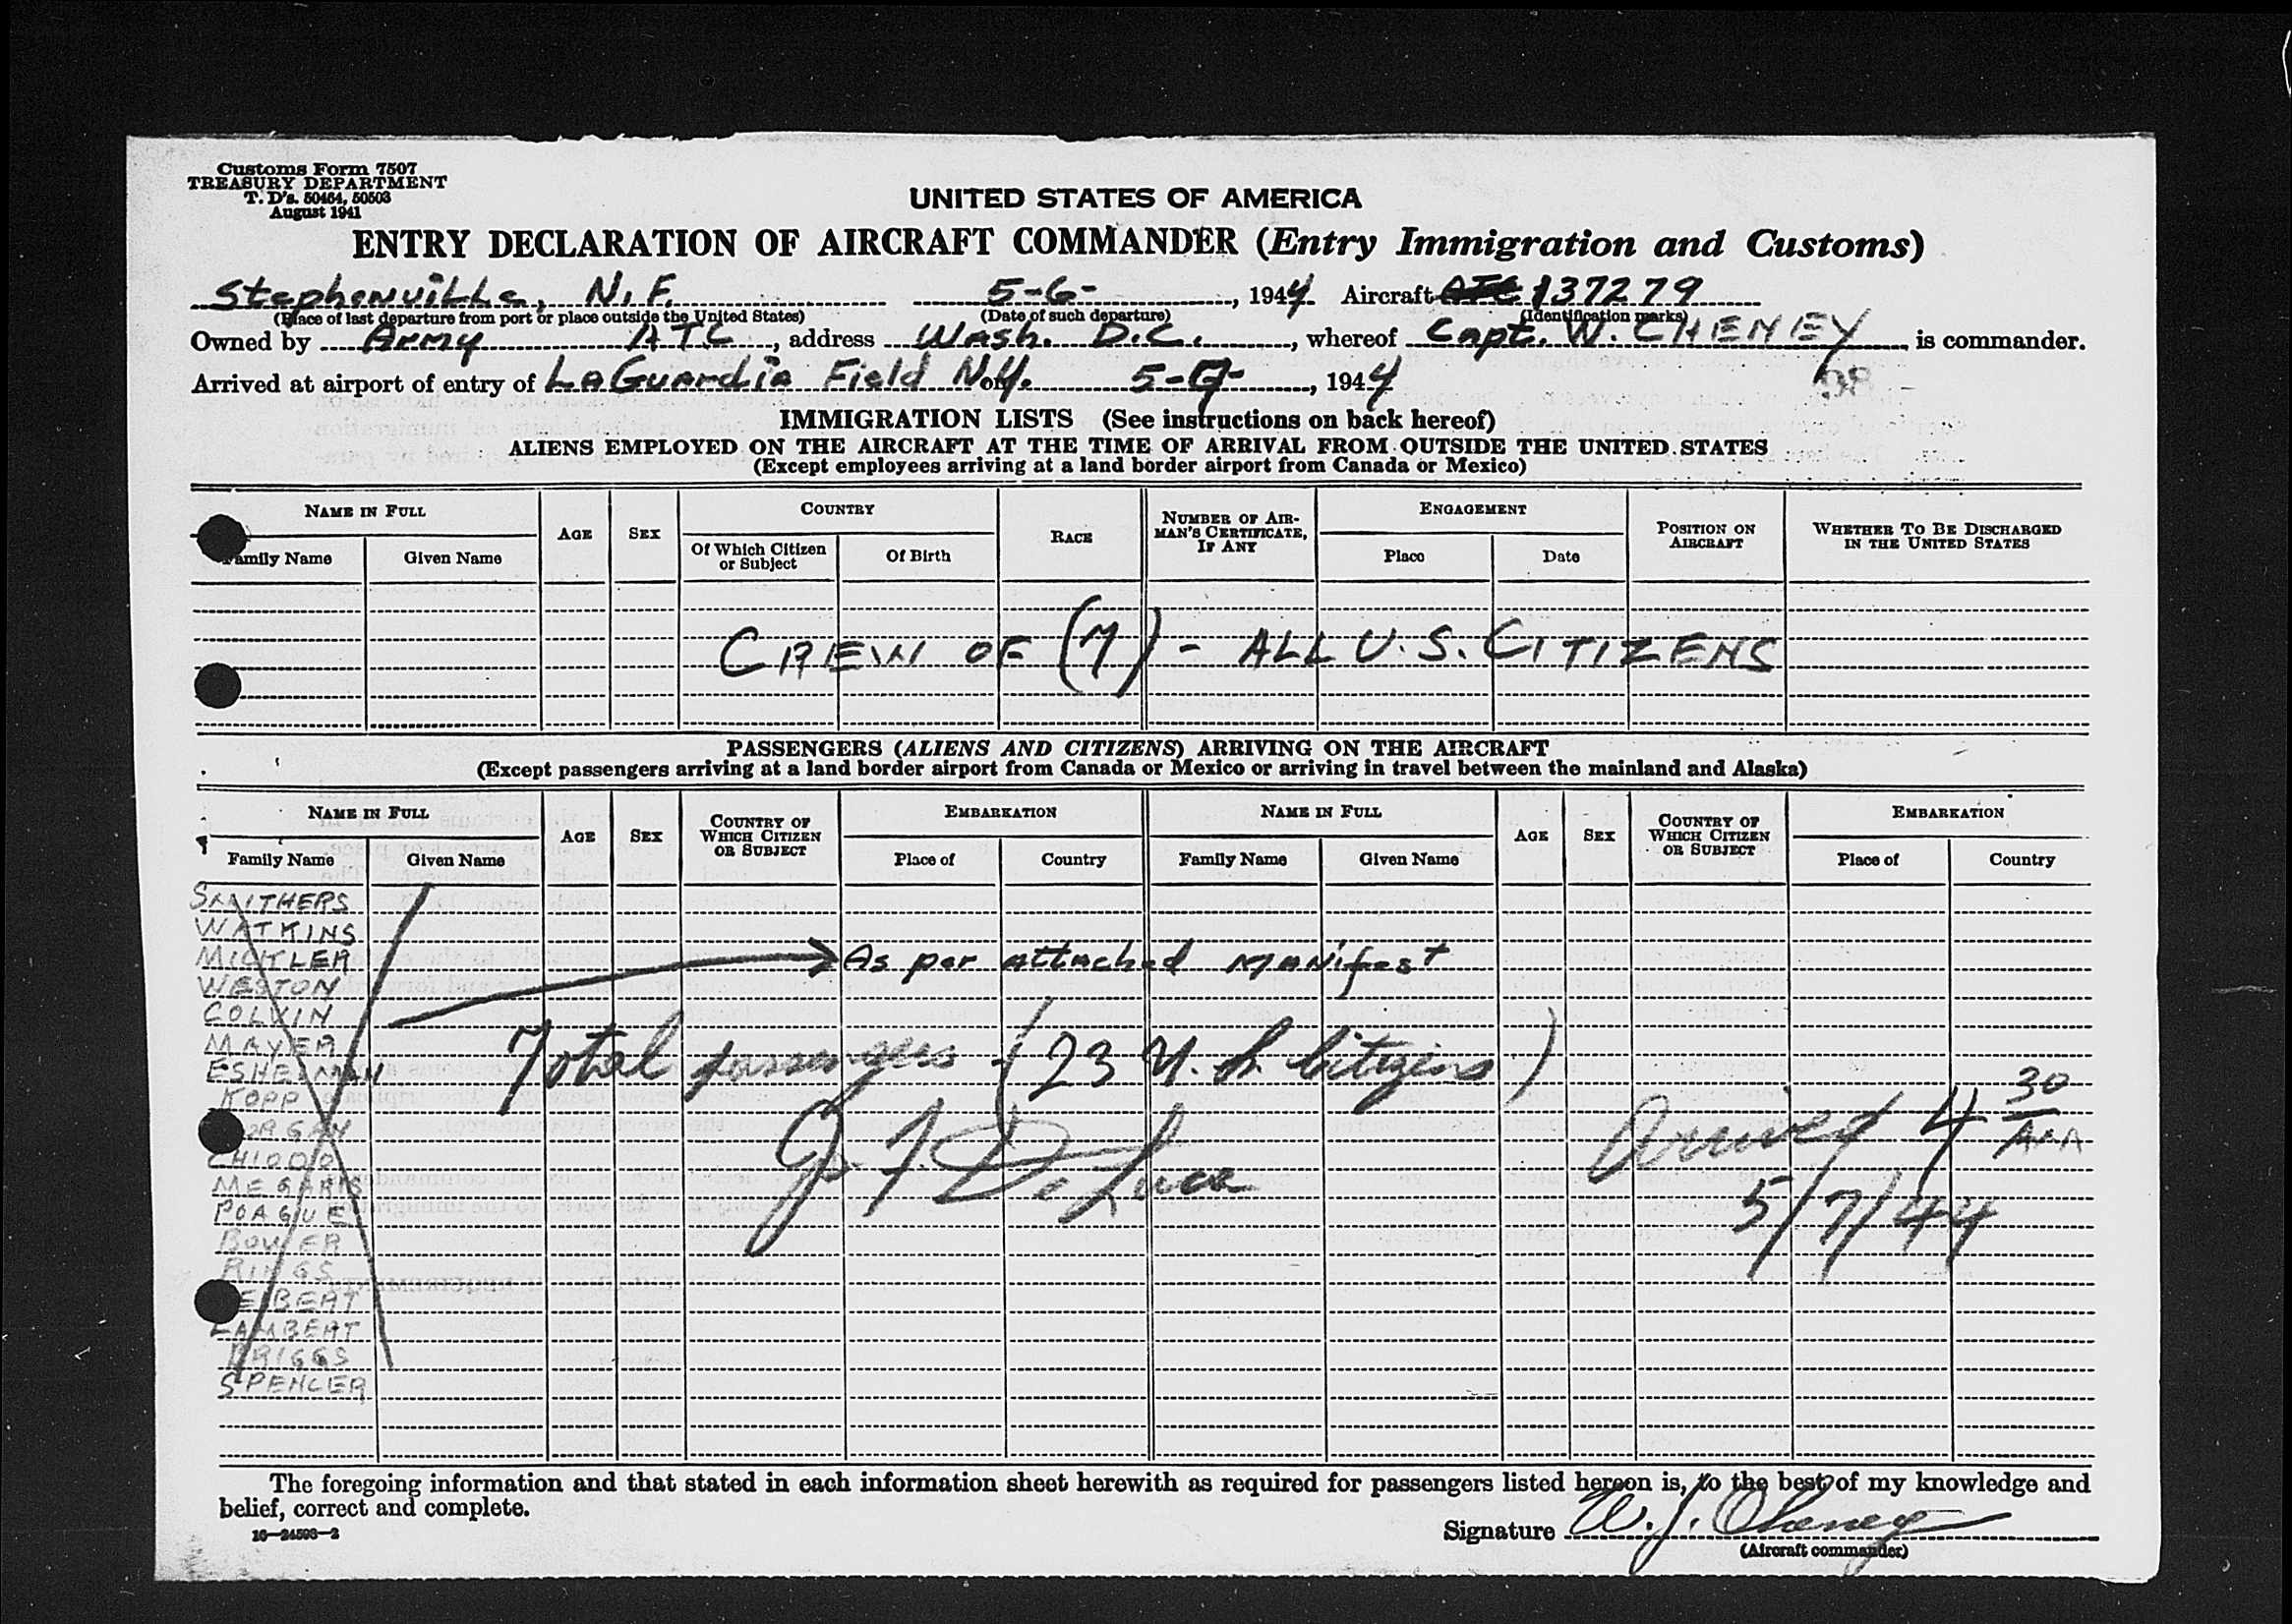 Customs Form 7507
TREASURY DEPARTMENT
T. D's. 50464, 50503
August 1941
UNITED STATES OF AMERICA
ENTRY DECLARATION OF AIRCRAFT COMMANDER (Entry Immigration and Customs)
Stephenville, N.F. 5-6-, 1944 Aircraft ATC 137279
(Place of last departure from port or place outside the United States) (Date of such departure) (Identification marks)
Owned by Army ATC, address Wash. D.C., whereof Capt. W. CHENEY is commander.
Arrived at airport of entry of LaGuardia Field N.Y. on 5-7-, 1944
98
IMMIGRATION LISTS (See instructions on back hereof)
ALIENS EMPLOYED ON THE AIRCRAFT AT THE TIME OF ARRIVAL FROM OUTSIDE THE UNITED STATES
(Except employees arriving at a land border airport from Canada or Mexico)
NAME IN FULL AGE SEX COUNTRY RACE NUMBER OF AIRMAN'S CERTIFICATE, IF ANY ENGAGEMENT POSITION ON AIRCRAFT WHETHER TO BE DISCHARGED IN THE UNITED STATES
Family Name Given Name Of Which Citizen or Subject Of Birth Place Date
CREW OF (7) - ALL U.S. CITIZENS
PASSENGERS (ALIENS AND CITIZENS) ARRIVING ON THE AIRCRAFT
(Except passengers arriving at a land border airport from Canada or Mexico or arriving in travel between the mainland and Alaska)
NAME IN FULL AGE SEX COUNTRY OF WHICH CITIZEN OR SUBJECT EMBARKATION NAME IN FULL AGE SEX COUNTRY OF WHICH CITIZEN OR SUBJECT EMBARKATION
Family Name Given Name Place of Country Family Name Given Name Place of Country
SMITHERS
WATKINS
As per attached manifest
WESTON
COLVIN
MAYER
ESHELMAN
Total passengers - (23 U.S. Citizens)
KOPP
Arrived 4 30 AM
CHIODO
J. F. De Luca
MEGARIS
5/7/44
POAGUE
BOWER
RINGS
LAMBERT
BRIGGS
SPENCER
The foregoing information and that stated in each information sheet herewith as required for passengers listed hereon is, to the best of my knowledge and
belief, correct and complete.
16—24593-2
Signature W. J. Cheney
(Aircraft commander)